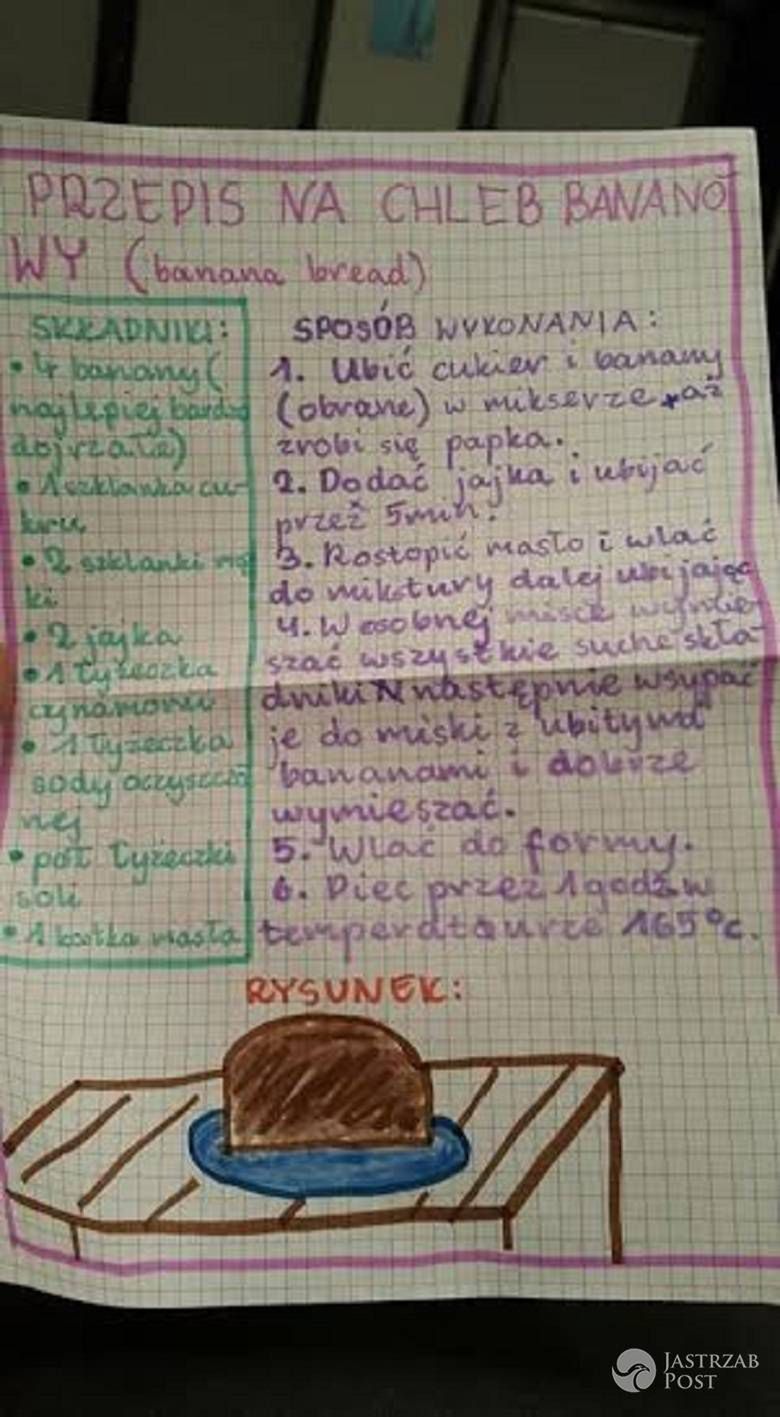 PRZEPIS NA CHLEB BANANO
WY (banana bread)
SKŁADNIKI:
• 4 banany (
najlepiej bardzo
dojrzałe)
• 1 szklanka cu-
kru
• 2 szklanki mą
ki
• 2 jajka
• 1 łyżeczka
cynamonu
• 1 łyżeczka
sody oczyszczo
nej
• pół łyżeczki
soli
• 1 kostka masła
SPOSÓB WYKONANIA:
1. Ubić cukier i banany
(obrane) w mikserze aż
zrobi się papka.
2. Dodać jajka i ubijać
przez 5min.
3. Rostopić masło i wlać
do mikstury dalej ubijając
4. W osobnej misce wymie
szać wszystkie suche skła-
dniki następnie wsypać
je do miski z ubitymi
bananami i dobrze
wymieszać.
5. Wlać do formy.
6. Piec przez 1 godź w
temperaturze 165°c.
RYSUNEK:
JASTRZAB
POST